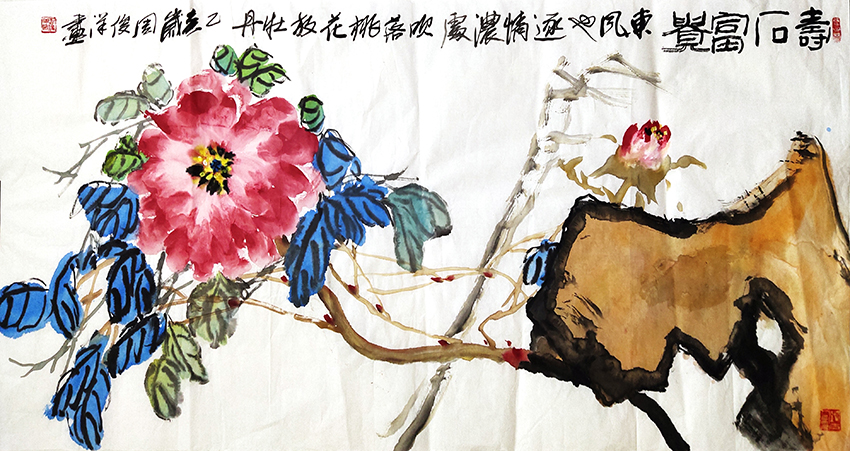 壽石富貴 東風也逐情濃處吹落桃花放牡丹 己亥歲周俊洋畫